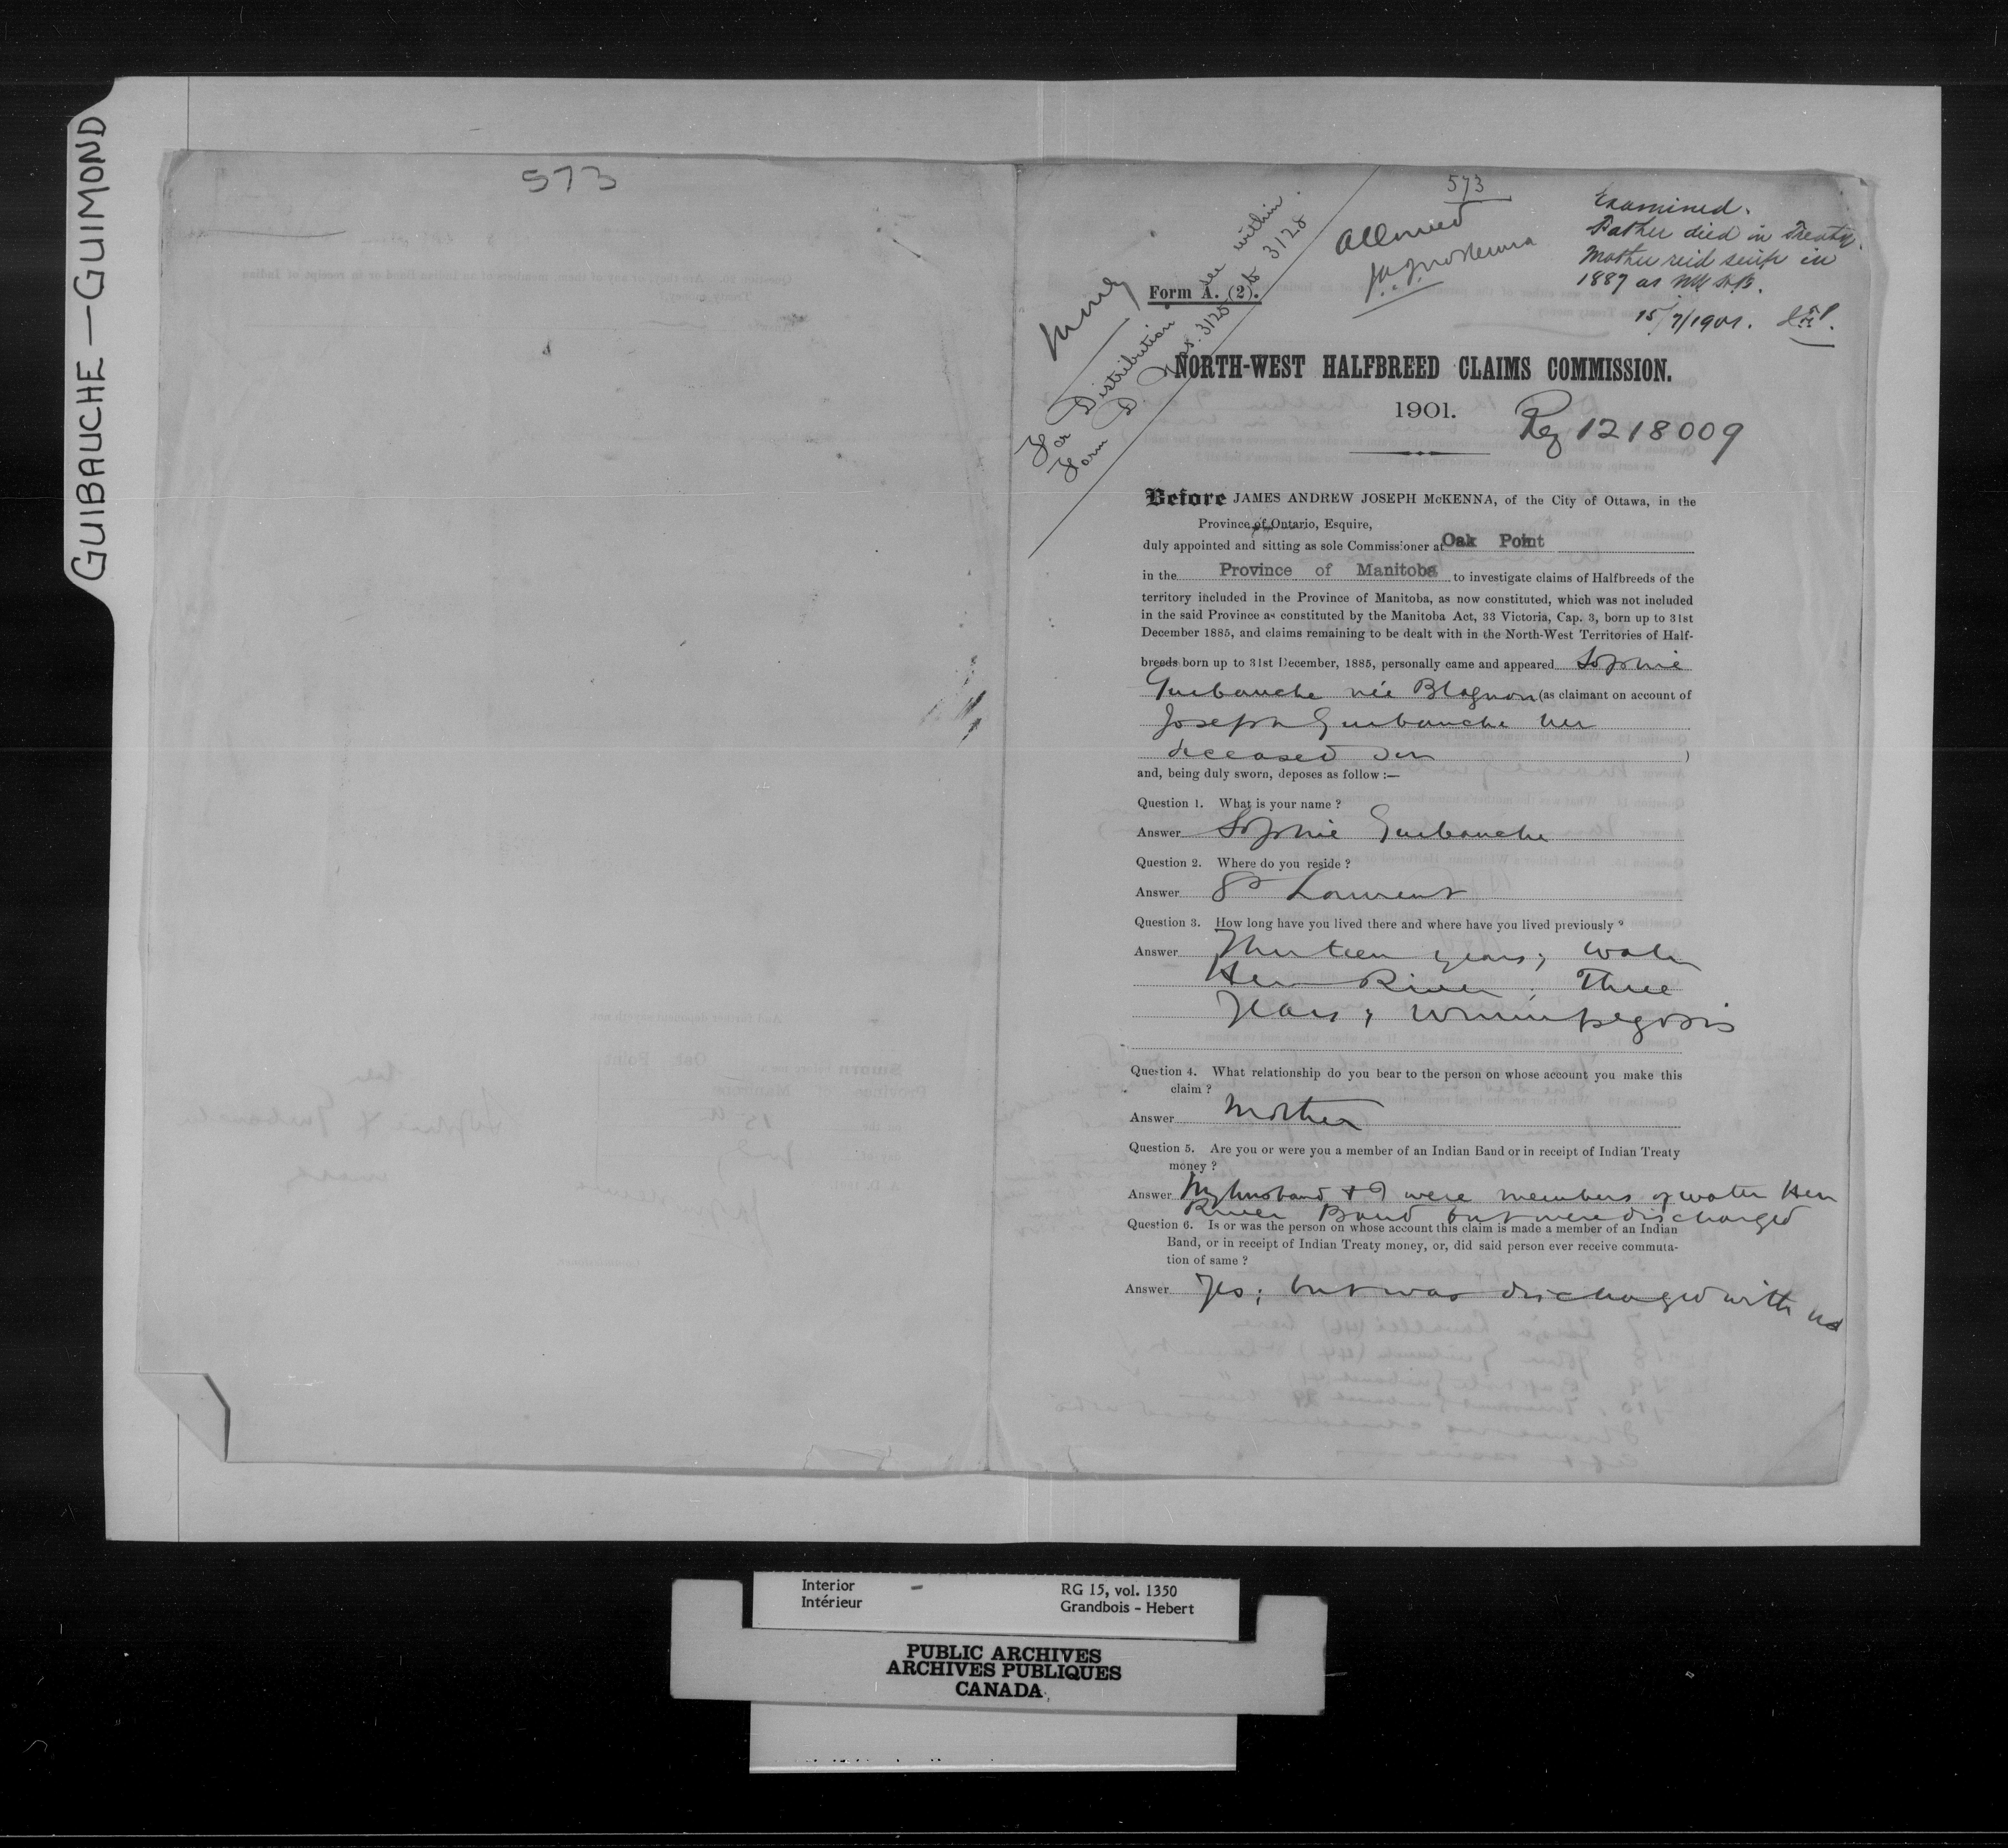 GUIBAUCHE — GUIMOND
573
573
Allowed
Examined.
Father died in Treaty.
Mother recd scrip in
1887 as NW H.B.
15/7/1901.
For Distribution see within
Form D Nos. 3125 to 3128
Form A. (2).
NORTH-WEST HALFBREED CLAIMS COMMISSION.
1901.
Reg 1218009
Before JAMES ANDREW JOSEPH McKENNA, of the City of Ottawa, in the
Province of Ontario, Esquire,
duly appointed and sitting as sole Commissioner at Oak Point
in the Province of Manitoba to investigate claims of Halfbreeds of the
territory included in the Province of Manitoba, as now constituted, which was not included
in the said Province as constituted by the Manitoba Act, 33 Victoria, Cap. 3, born up to 31st
December 1885, and claims remaining to be dealt with in the North-West Territories of Half-
breeds born up to 31st December, 1885, personally came and appeared Sophie
Guibauche née Blagnon (as claimant on account of
Joseph Guibauche her
deceased son )
and, being duly sworn, deposes as follow :—
Question 1. What is your name ?
Answer Sophie Guibauche
Question 2. Where do you reside ?
Answer St Laurent
Question 3. How long have you lived there and where have you lived previously ?
Answer Thirteen years; Water
Hen River; Three
Years; Winnipegosis
Question 4. What relationship do you bear to the person on whose account you make this
claim ?
Answer Mother
Question 5. Are you or were you a member of an Indian Band or in receipt of Indian Treaty
money ?
Answer My husband & I were members of Water Hen
River Band but were discharged
Question 6. Is or was the person on whose account this claim is made a member of an Indian
Band, or in receipt of Indian Treaty money, or, did said person ever receive commuta-
tion of same ?
Answer Yes; but was discharged with us
Interior
Intérieur
RG 15, vol. 1350
Grandbois - Hebert
PUBLIC ARCHIVES
ARCHIVES PUBLIQUES
CANADA